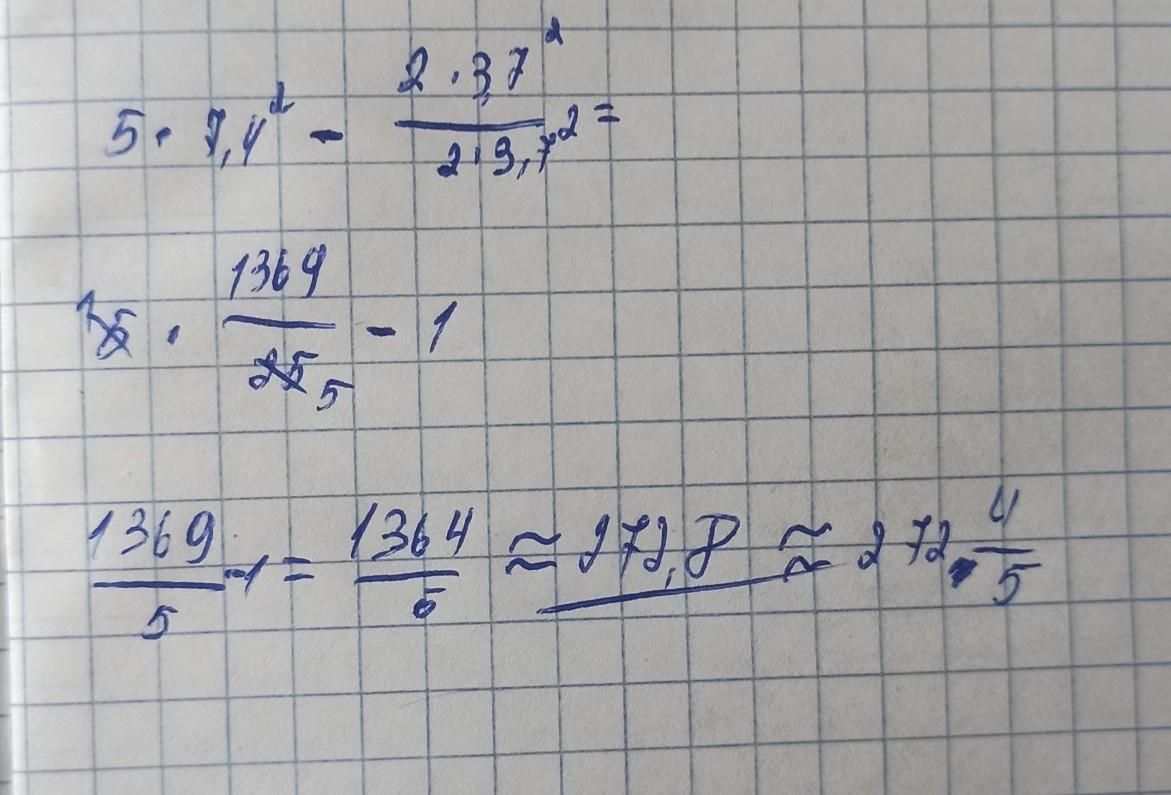 5 · 7,4² - (2 · 3,7²)/(2 · 3,7²) =
5 · 1369/25 - 1 (5 → 1, 25 → 5)
1369/5 - 1 = 1364/5 ≈ 272,8 ≈ 272 4/5